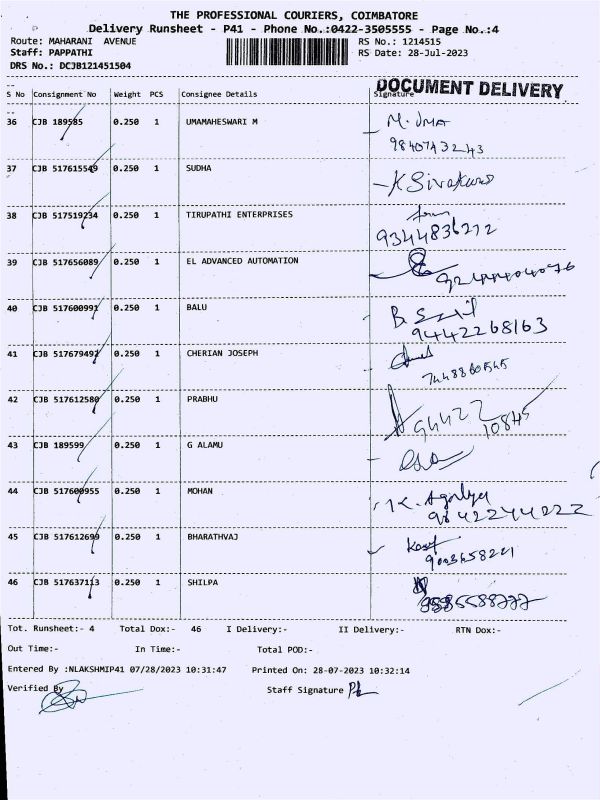 THE PROFESSIONAL COURIERS, COIMBATORE
Delivery Runsheet - P41 - Phone No.:0422-3505555 - Page No.:4
Route: MAHARANI AVENUE RS No.: 1214515
Staff: PAPPATHI RS Date: 28-Jul-2023
DRS No.: DCJB121451504
DOCUMENT DELIVERY
S No Consignment No Weight PCS Consignee Details Signature
36 CJB 189585 0.250 1 UMAMAHESWARI M M. UMA
37 CJB 517615549 0.250 1 SUDHA K Sivakumar
38 CJB 517519234 0.250 1 TIRUPATHI ENTERPRISES
9344836272
39 CJB 517656089 0.250 1 EL ADVANCED AUTOMATION
40 CJB 517600991 0.250 1 BALU
9442268163
41 CJB 517679492 0.250 1 CHERIAN JOSEPH
7448860545
42 CJB 517612580 0.250 1 PRABHU
43 CJB 189599 0.250 1 G ALAMU
44 CJB 517600955 0.250 1 MOHAN
9842244222
45 CJB 517612699 0.250 1 BHARATHVAJ
9003658221
46 CJB 517637113 0.250 1 SHILPA
Tot. Runsheet:- 4 Total Dox:- 46 I Delivery:- II Delivery:- RTN Dox:-
Out Time:- In Time:- Total POD:-
Entered By :NLAKSHMIP41 07/28/2023 10:31:47 Printed On: 28-07-2023 10:32:14
Verified By Staff Signature